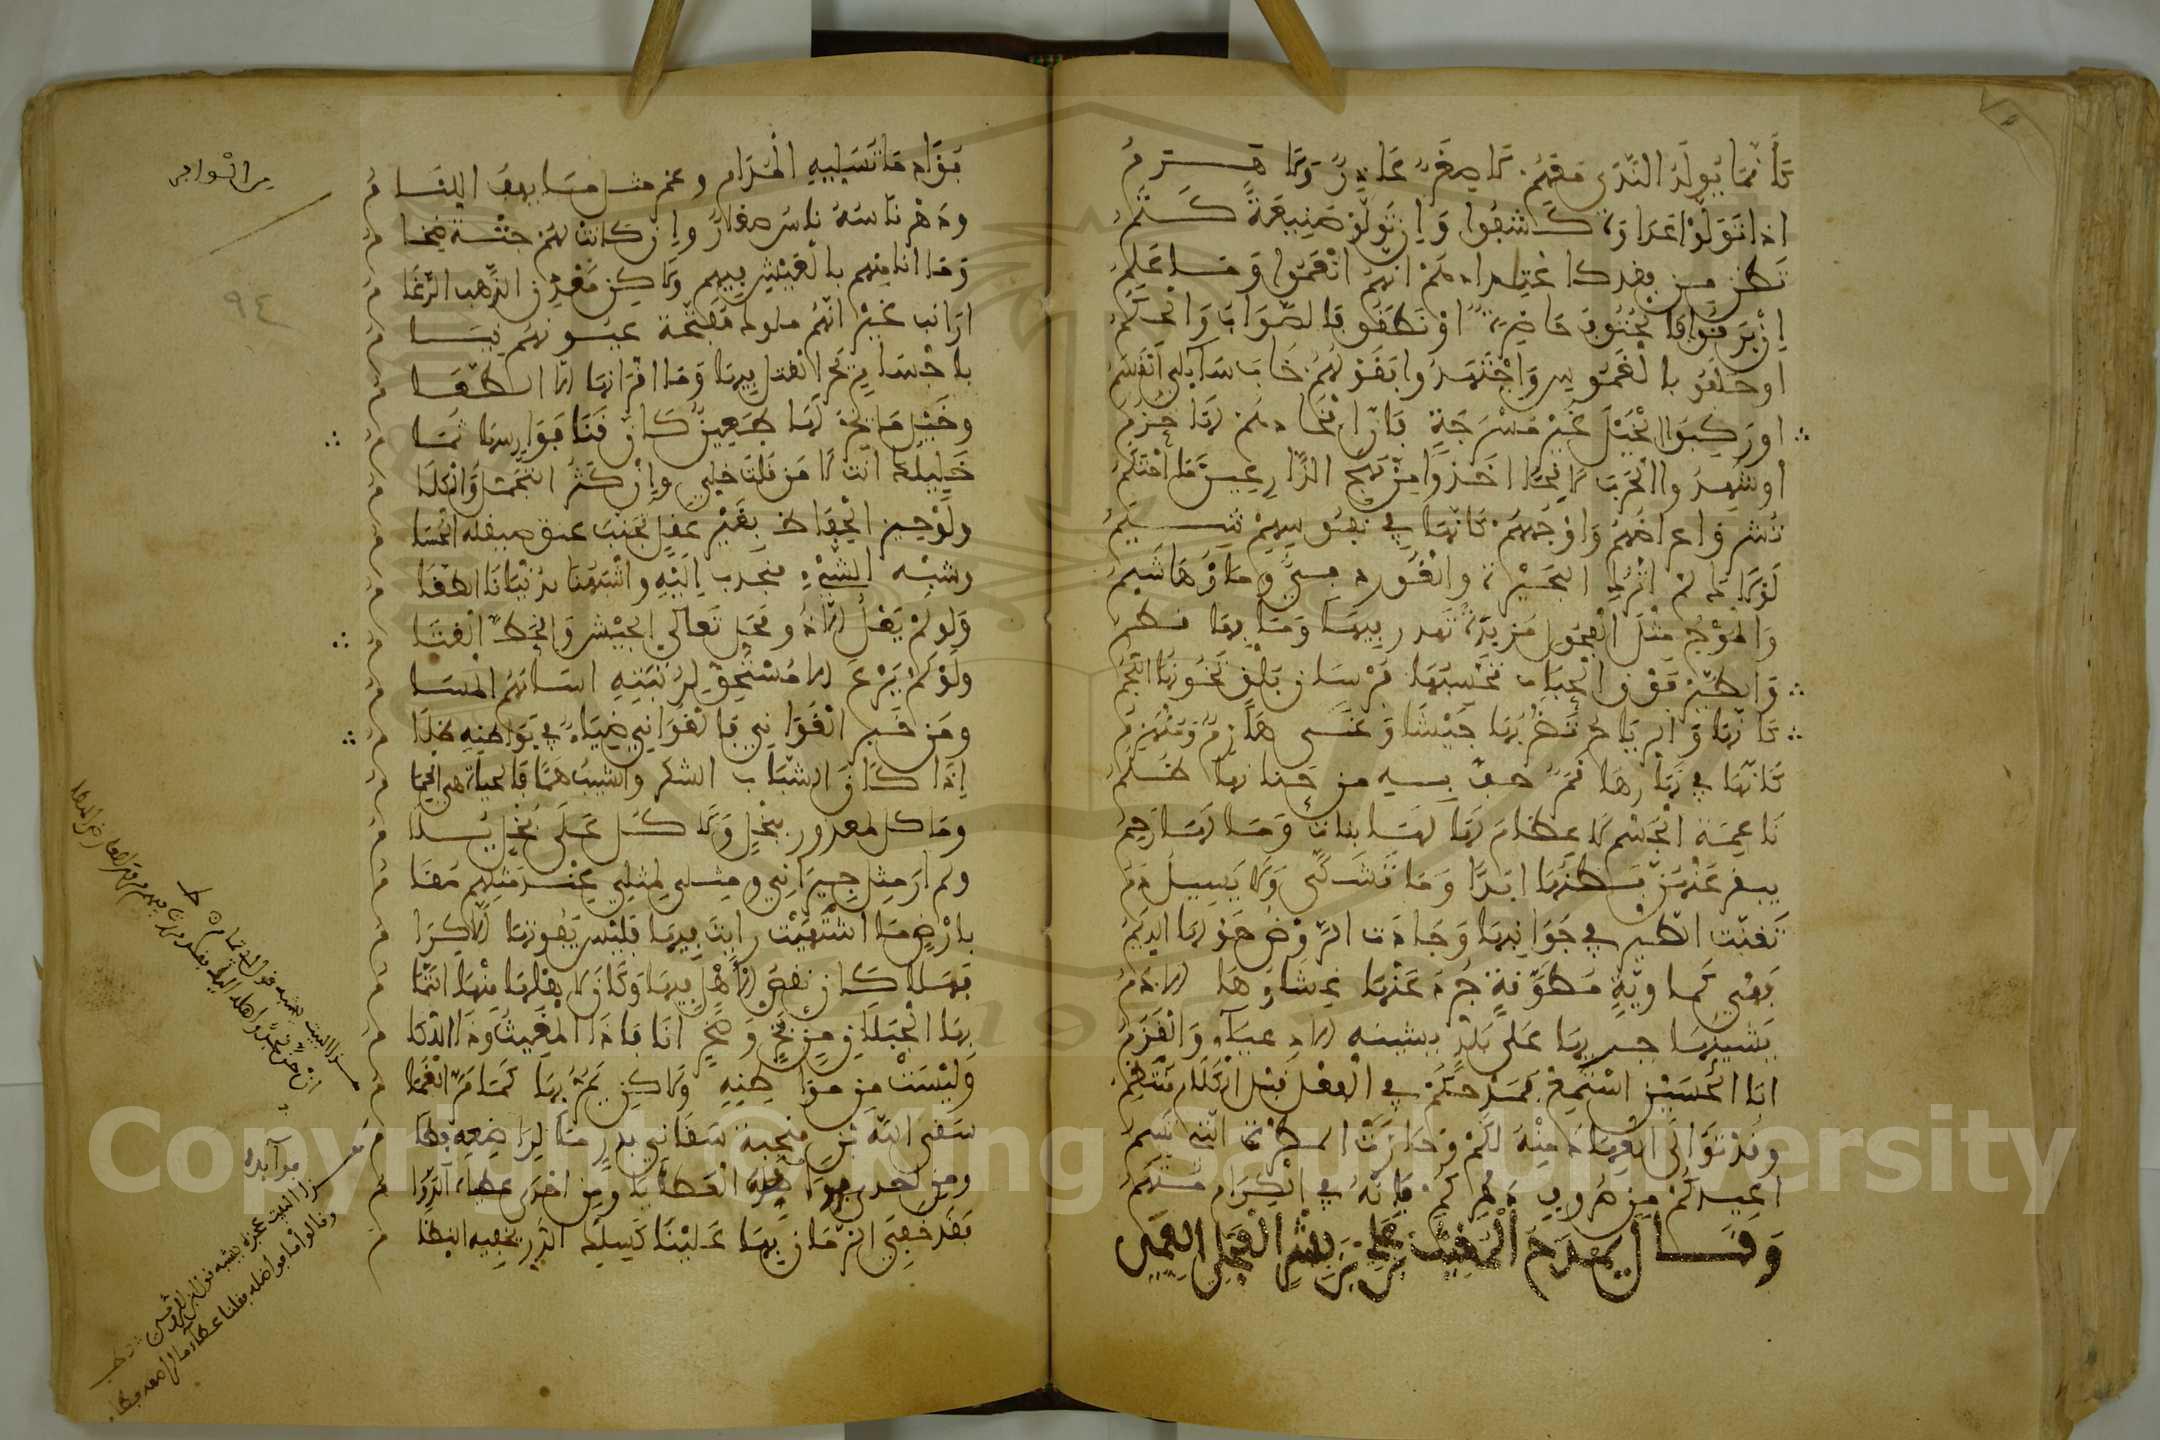 كأنما يولد الندى معهم لا صغر عاذر ولا هرم
اذا تولوا عداوة كشفوا وإن تولوا صنيعة كتموا
تظن من فقدك اعتدادهم أنهم انعموا وما علموا
إن برقوا فالحتوف حاضرة او نطقوا فالصواب والحكم
او حلفوا بالغموس واجتهدوا فقولهم خاب سائلي القسم
او ركبوا الخيل غير مسرجة فإن افخاذهم لها حزم
أو شهدوا الحرب لاقحا اخذوا من مهج الدارعين ما احتكموا
تشرق اعراضهم واوجههم كأنها في نفوسهم شيم
لولاك لم اترك البحيرة والغور دفيء وماؤها شبم
والموج مثل الفحول مزبدة تهدر فيها وما بها قطم
والطير فوق الحباب تحسبها فرسان بلق تخونها اللجم
كأنها والرياح تضربها جيشا وغى هازم ومنهزم
كأنها في نهارها قمر حف به من جنانها ظلم
ناعمة الجسم لا عظام لها لها بنات وما لها رحم
يبقر عنهن بطنها ابدا وما تشكى ولا يسيل دم
تغنت الطير في جوانبها وجادت الروض حولها الديم
فهي كماوية مطوقة جرد عنها غشاؤها الادم
يشينها جريها على بلد يشينه الادعياء والقزم
ابا الحسين استمع فمدحكم في الفعل قبل الكلام منتظم
وقد توالى العهاد منه لكم وجادت المطرة التي تسم
اعيذكم من صروف دهركم فإنه في الكرام متهم
وقال يمدح المغيث بن علي بن بشر العجلي العمي
من الوافر
فؤاد ما تسليه المدام وعمر مثل ما يهب اللئام
ودهر ناسه ناس صغار وإن كانت لهم جثث ضخام
وما انا منهم بالعيش فيهم ولكن معدن الذهب الرغام
ارانب غير انهم ملوك مفتحة عيونهم نيام
باجسام يحر القتل فيها وما اقرانها الا الطعام
وخيل ما يخر لها طعين كأن قنا فوارسها ثمام
خليلك انت لا من قلت خلي وإن كثر التجمل والكلام
ولو حيز الحفاظ بغير عقل تجنب عنق صيقله الحسام
وشبه الشيء منجذب إليه واشبهنا بدنيانا الطغام
ولو لم يعل الا ذو محل تعالى الجيش وانحط القتام
ولو لم يرع الا مستحق لرتبته اسامهم المسام
ومن خبر الغواني فالغواني ضياء في بواطنه ظلام
إذا كان الشباب السكر والشيب هما فالحياة هي الحمام
وما كل بمعذور ببخل ولا كل على بخل يلام
ولم ار مثل جيراني ومثلي لمثلي عند مثلهم مقام
بارض ما اشتهيت رايت فيها فليس يفوتها الا كرام
فهلا كان نقص الأهل فيها وكان لاهلها منها التمام
بها الجبلان من فخر وصخر انافا ذا المغيث وذا اللكام
وليست من مواطنه ولكن يمر بها كما مر الغمام
سقى الله ابن منجبة سقاني بدر ما لراضعه فطام
ومن احدى فوائده العطايا ومن احدى عطاياه الدوام
فقد خفي الزمان بها علينا كسلك الدر يخفيه النظام